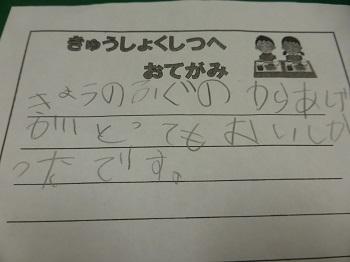 きゅうしょくしつへ
おてがみ
きょうのふぐの からあげ
が とっても おいしか
ったです。